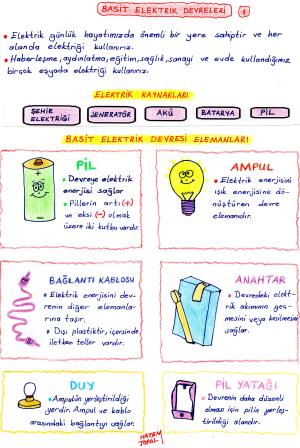 BASİT ELEKTRİK DEVRELERİ 1
• Elektrik günlük hayatımızda önemli bir yere sahiptir ve her
alanda elektriği kullanırız.
• Haberleşme, aydınlatma, eğitim, sağlık, sanayi ve evde kullandığımız
birçok eşyada elektriği kullanırız.
ELEKTRİK KAYNAKLARI
ŞEHİR
ELEKTRİĞİ
JENERATÖR
AKÜ
BATARYA
PİL
BASİT ELEKTRİK DEVRESİ ELEMANLARI
PİL
• Devreye elektrik
enerjisi sağlar
• Pillerin artı (+)
ve eksi (-) olmak
üzere iki kutbu vardır.
AMPUL
• Elektrik enerjisini
ışık enerjisine dö-
nüştüren devre
elemanıdır.
BAĞLANTI KABLOSU
• Elektrik enerjisini dev-
renin diğer elemanla-
rına taşır.
• Dışı plastiktir, içerisinde
iletken teller vardır.
ANAHTAR
• Devredeki elekt-
rik akımının geç-
mesini veya kesilmesini
sağlar.
DUY
• Ampulün yerleştirildiği
yerdir. Ampul ve kablo
arasındaki bağlantıyı sağlar.
PİL YATAĞI
• Devrenin daha düzenli
olması için pilin yerleş-
tirildiği alandır.
HATEM
TOPAL